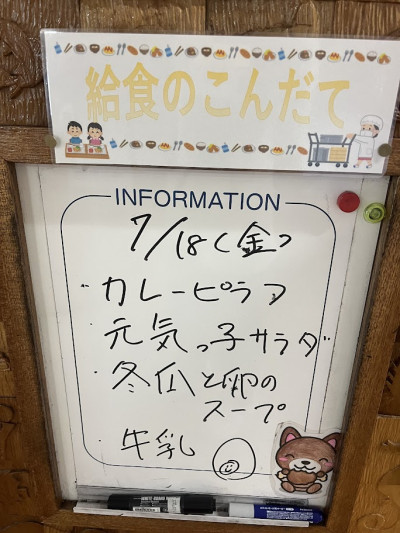 給食のこんだて
INFORMATION
7/18(金)
・カレーピラフ
・元気っ子サラダ
・冬瓜と卵の
スープ
・牛乳